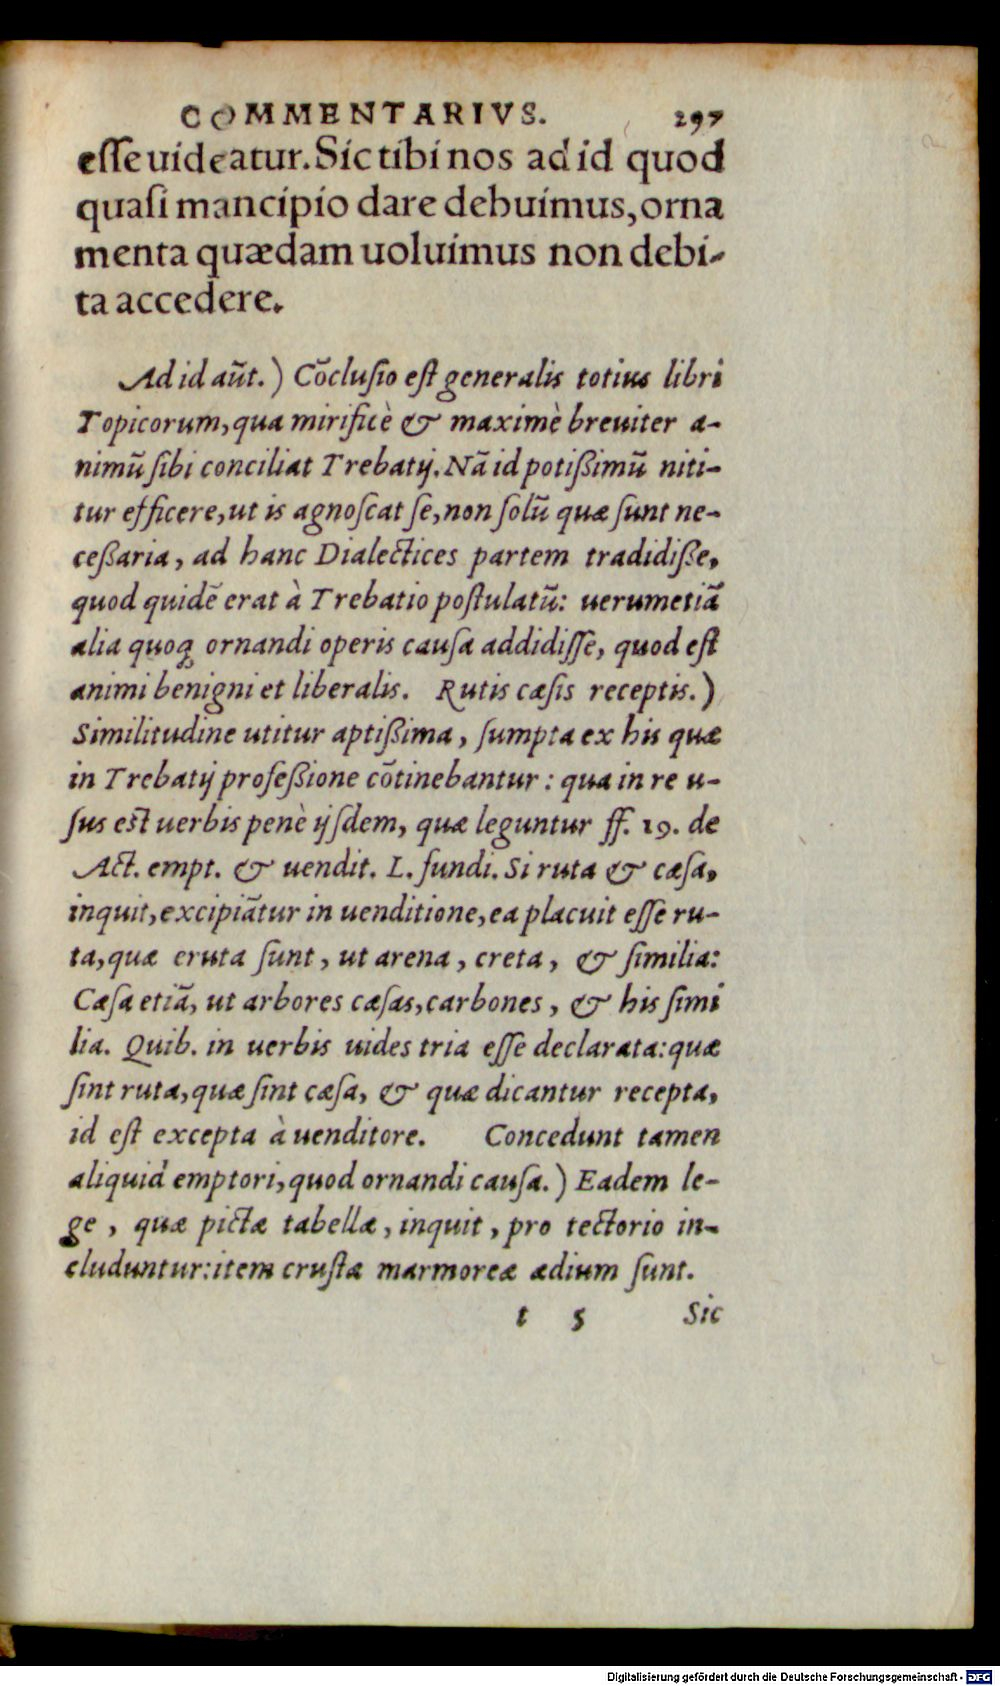 COMMENTARIVS. 297
esse uideatur. Sic tibi nos ad id quod
quasi mancipio dare debuimus, orna
menta quædam uoluimus non debi-
ta accedere.
Ad id aūt.) Cōclusio est generalis totius libri
Topicorum, qua mirificè & maximè breuiter a-
nimū sibi conciliat Trebatij. Nā id potißimū niti-
tur efficere, ut is agnoscat se, non solū quæ sunt ne-
ceßaria, ad hanc Dialectices partem tradidiße,
quod quidē erat à Trebatio postulatū: uerumetiā
alia quoq; ornandi operis causa addidisse, quod est
animi benigni et liberalis. Rutis cæsis receptis.)
Similitudine utitur aptißima, sumpta ex his quæ
in Trebatij profeßione cōtinebantur: qua in re u-
sus est uerbis penè ijsdem, quæ leguntur ff. 19. de
Act. empt. & uendit. L. fundi. Si ruta & cæsa,
inquit, excipiātur in uenditione, ea placuit esse ru-
ta, quæ eruta sunt, ut arena, creta, & similia:
Cæsa etiā, ut arbores cæsas, carbones, & his simi
lia. Quib. in uerbis uides tria esse declarata: quæ
sint ruta, quæ sint cæsa, & quæ dicantur recepta,
id est excepta à uenditore. Concedunt tamen
aliquid emptori, quod ornandi causa.) Eadem le-
ge, quæ pictæ tabellæ, inquit, pro tectorio in-
cluduntur: item crustæ marmoreæ ædium sunt.
t 5 Sic
Digitalisierung gefördert durch die Deutsche Forschungsgemeinschaft - DFG